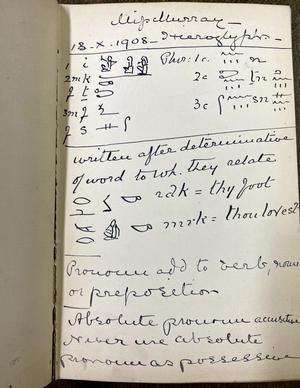 Miss Murray
18-X-1908 - Hieroglyphs.
1 i Plur: 1c. n
2 m k 2c ṯn
f ṯ
3 m f 3c sn
f s
written after determinative
of word to wh. they relate
rdk = thy foot
mrk = thou lovest
Pronoun add to verb, noun
or preposition
Absolute pronoun accusative
Never use absolute
pronoun as possessive